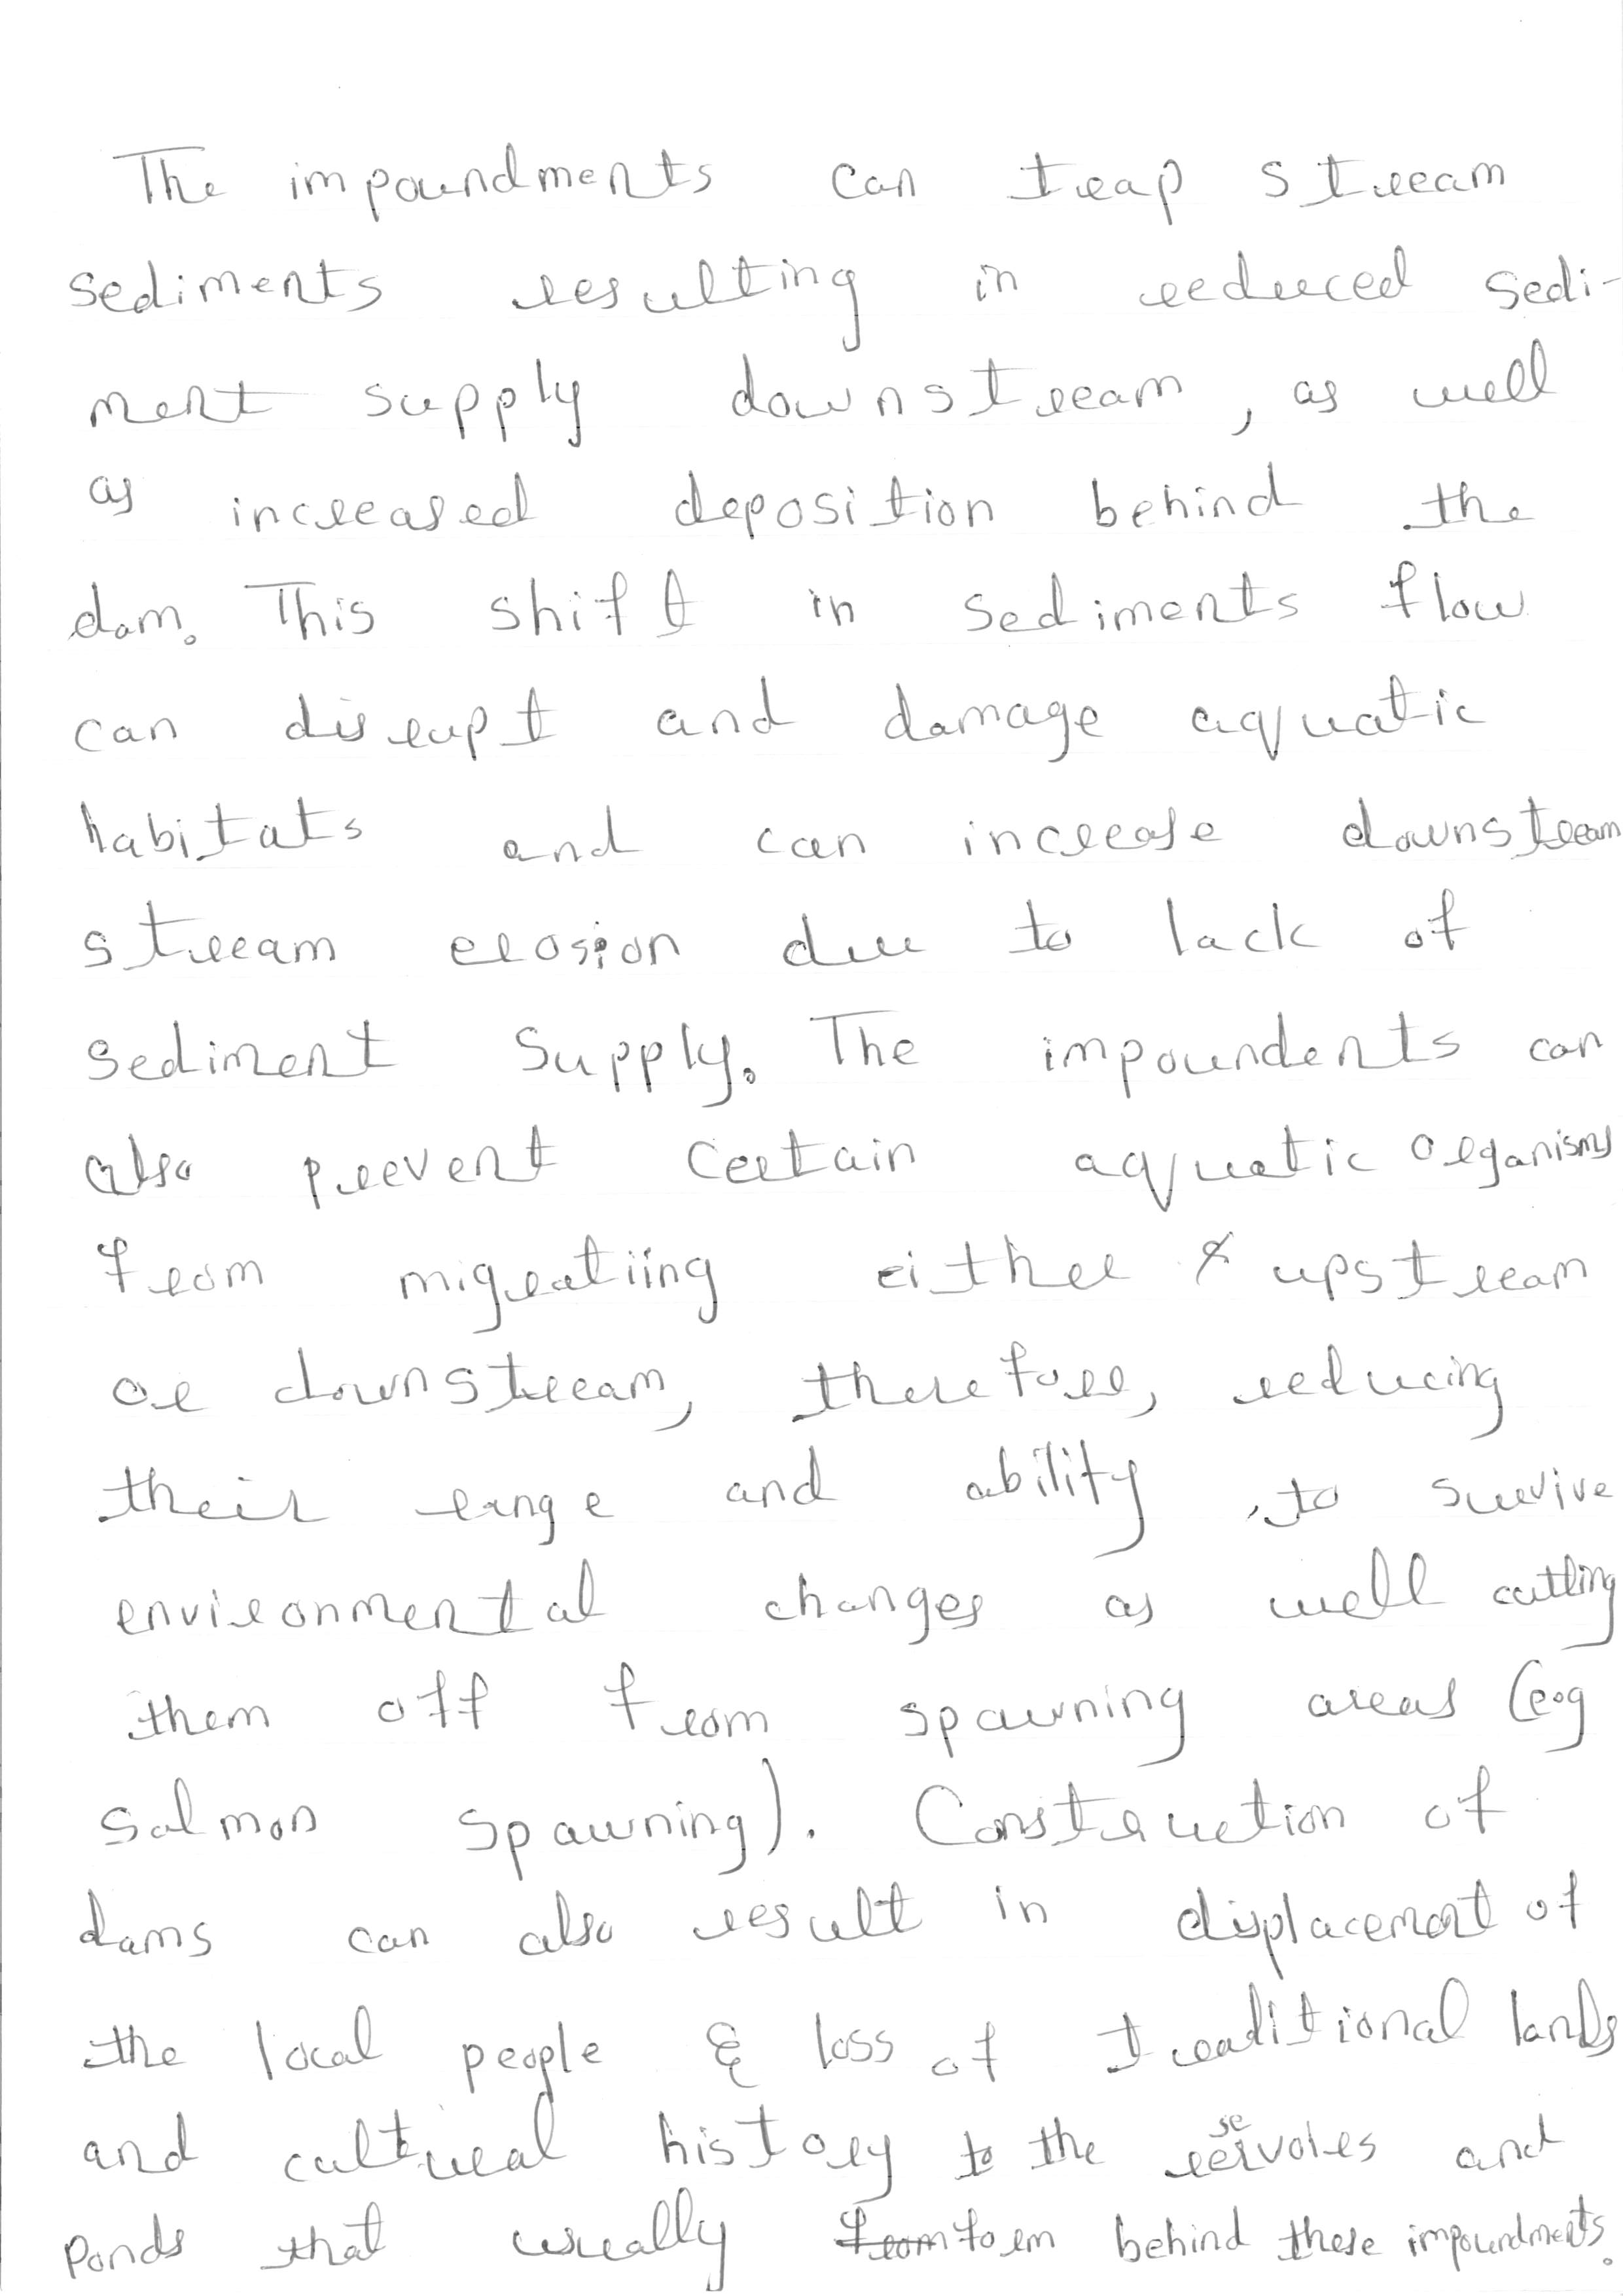 The impoundments can trap stream
sediments resulting in reduced sedi-
ment supply downstream, as well
as increased deposition behind the
dam. This shift in sediments flow
can disrupt and damage aquatic
habitats and can increase downstream
stream erosion due to lack of
sediment supply. The impoundents can
also prevent certain aquatic organisms
from migratiing either upstream
or downstream, therefore, reducing
their range and ability to survive
environmental changes as well cutting
them off from spawning areas (e.g
salmon spawning). Construction of
dams can also result in displacement of
the local people & loss of traditional lands
and cultural history to the reservoirs and
Ponds that usually from form behind these impoundments.